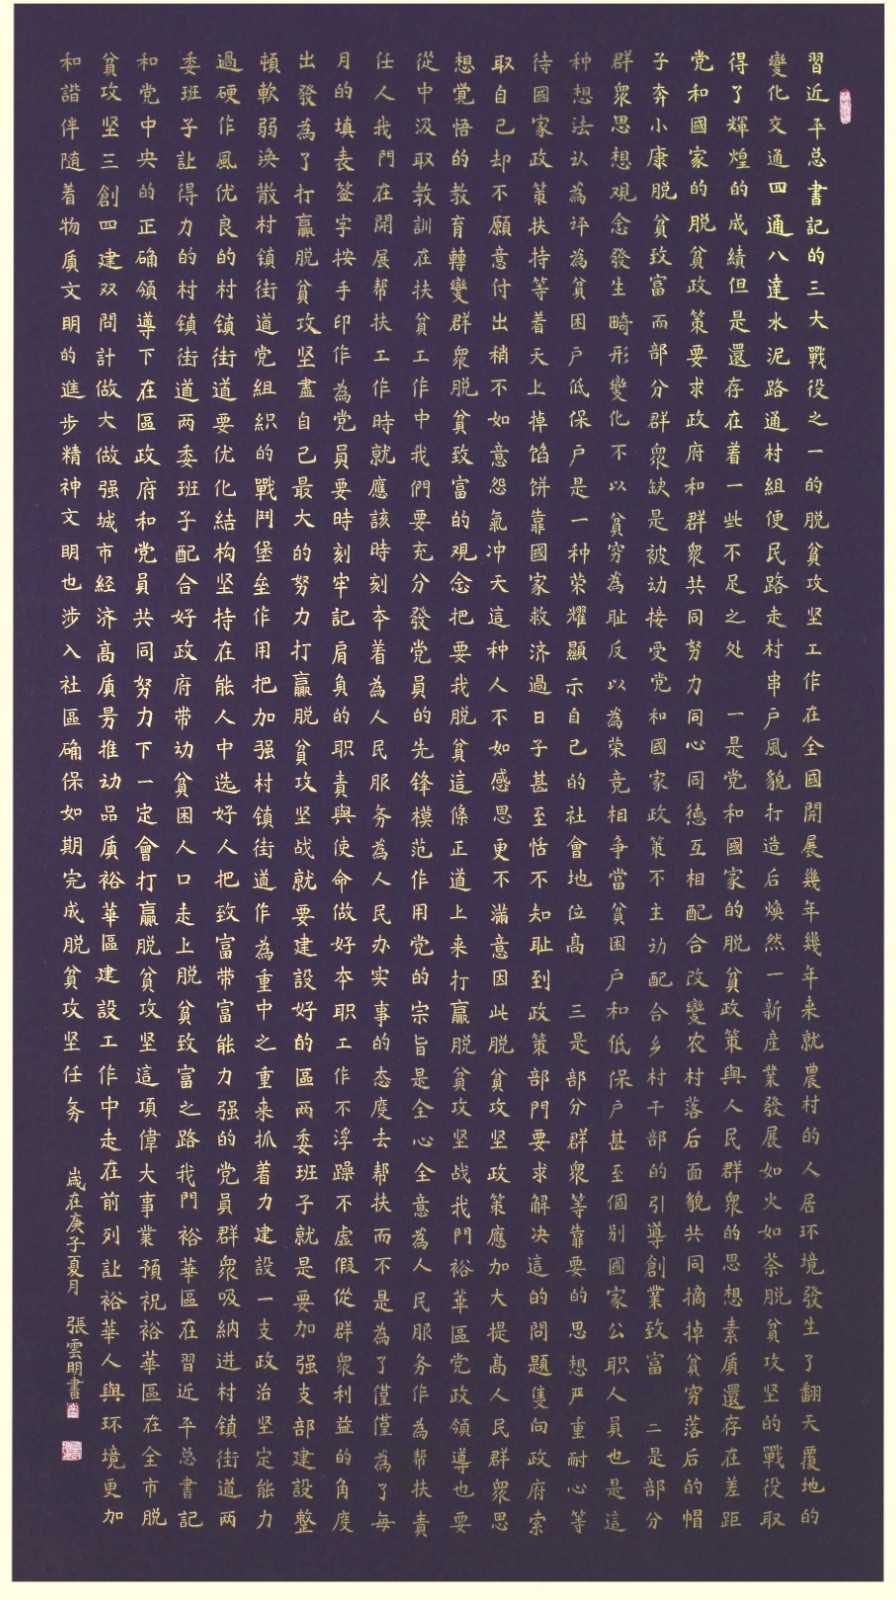 習近平总書記的三大戰役之一的脱貧攻坚工作在全國開展幾年幾年来就農村的人居环境發生了翻天覆地的
變化交通四通八達水泥路通村組便民路走村串户風貌打造后煥然一新産業發展如火如荼脱貧攻坚的戰役取
得了輝煌的成績但是還存在着一些不足之处 一是党和國家的脱貧政策與人民群衆的思想素质還存在差距
党和國家的脱貧政策要求政府和群衆共同努力同心同德互相配合改變农村落后面貌共同摘掉貧穷落后的帽
子奔小康脱貧致富而部分群衆缺是被动接受党和國家政策不主动配合乡村干部的引導創業致富 二是部分
群衆思想观念發生畸形變化不以貧穷為耻反以為荣竞相争當貧困户和低保户甚至個别國家公职人員也是這
种想法认為评為貧困户低保户是一种荣耀顯示自己的社會地位高 三是部分群衆等靠要的思想严重耐心等
待國家政策扶持等着天上掉馅饼靠國家救济過日子甚至恬不知耻到政策部門要求解决這的問題隻向政府索
取自己却不願意付出稍不如意怨氣冲天這种人不如感恩更不滿意因此脱貧攻坚政策應加大提高人民群衆思
想觉悟的教育轉變群衆脱貧致富的观念把要我脱貧這條正道上来打贏脱貧攻坚战我門裕華區党政领導也要
從中汲取教訓在扶貧工作中我們要充分發党員的先锋模范作用党的宗旨是全心全意為人民服务作為帮扶責
任人我門在開展帮扶工作時就應該時刻本着為人民服务為人民办实事的态度去帮扶而不是為了僅僅為了每
月的填表签字按手印作為党員要時刻牢記肩負的职責與使命做好本职工作不浮躁不虚假從群衆利益的角度
出發為了打贏脱貧攻坚盡自己最大的努力打贏脱貧攻坚战就要建設好的區两委班子就是要加强支部建設整
頓軟弱涣散村镇街道党組織的戰鬥堡垒作用把加强村镇街道作為重中之重来抓着力建設一支政治坚定能力
過硬作風优良的村镇街道要优化結构坚持在能人中选好人把致富带富能力强的党員群衆吸納进村镇街道两
委班子让得力的村镇街道两委班子配合好政府带动貧困人口走上脱貧致富之路我門裕華區在習近平总書記
和党中央的正确领導下在區政府和党員共同努力下一定會打贏脱貧攻坚這項偉大事業預祝裕華區在全市脱
貧攻坚三創四建双問計做大做强城市経济高质量推动品质裕華區建設工作中走在前列让裕華人與环境更加
和諧伴隨着物质文明的進步精神文明也涉入社區确保如期完成脱貧攻坚任务
歲在庚子夏月 張雲明書